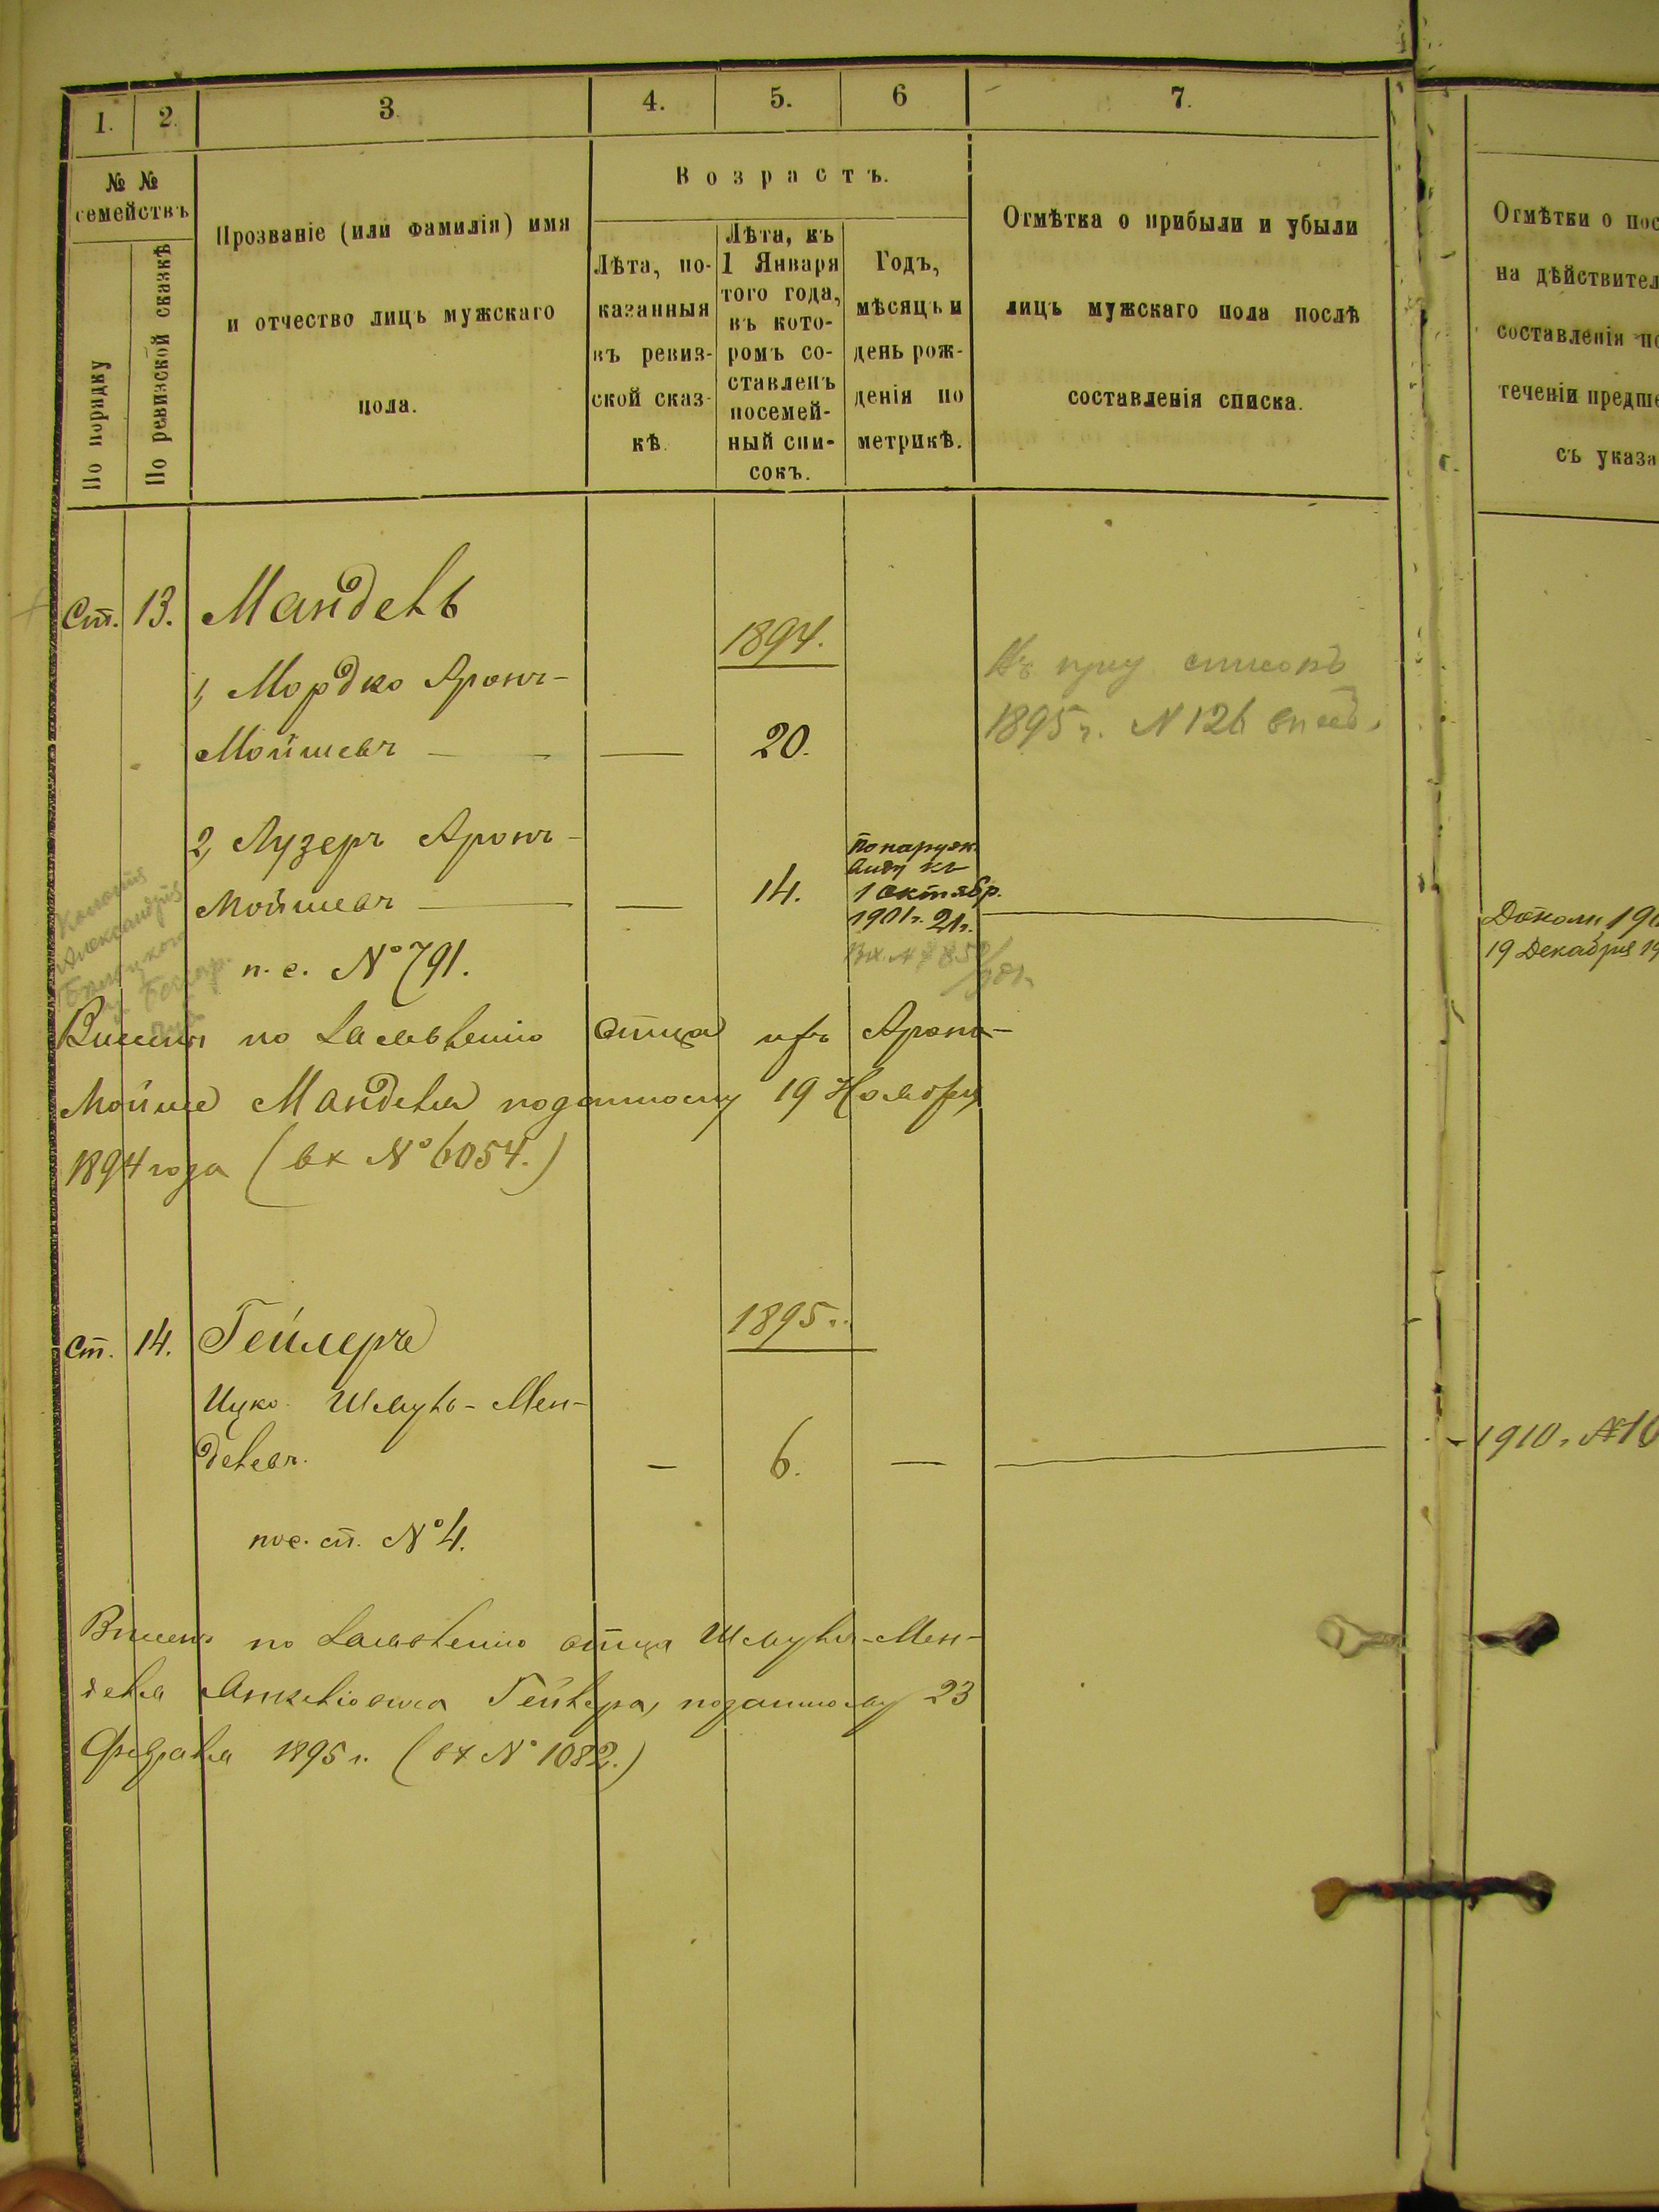 1. 2. 3. 4. 5. 6 7.
№ № семействъ
По порядку
По ревизской сказкѣ
Прозваніе (или фамилія) имя
и отчество лицъ мужскаго
пола.
Возрастъ.
Лѣта, по-
казанныя
въ ревиз-
ской сказ-
кѣ.
Лѣта, къ
1 Января
того года,
въ кото-
ромъ со-
ставленъ
посемей-
ный спи-
сокъ.
Годъ,
мѣсяцъ и
день рож-
денія по
метрикѣ.
Отмѣтка о прибыли и убыли
лицъ мужскаго пола послѣ
составленія списка.
Ст. 13. Мандель
1894.
1, Мордко Аронъ-
Мойшевъ — — 20.
списокъ
1895 г. N 126
2, Лузеръ Аронъ-
Мойшевъ — — 14.
По наруж.
виду къ
1 октябр.
1901 г. 21 г.
п. с. № 791.
Внесены по заявленію отца ихъ Арона-
Мойше Манделя поданному 19 Ноября
1894 года (вх № 6054.)
Ст. 14. Гейлеръ
1895 г.
Ицко Шмуль-Мен-
делевъ. — 6. —
пос. сп. № 4.
Внесенъ по заявленію отца Шмуля-Мен-
деля Анкелiовича Гейлера, поданному 23
Февраля 1895 г. (вх № 1082.)
Отмѣтки о пос
на дѣйствител
составленія по
теченіи предше
съ указа
19 Декабря 19
1910 г. №10